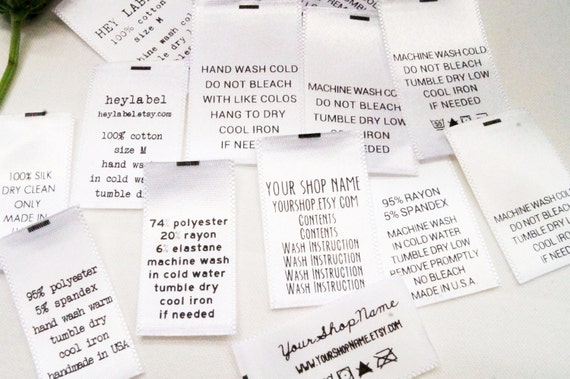 HEY LABEL
100% cotton
size M
machine wash
cold
tumble dry
TUMBLE DRY LOW
COOL IRON
MACHINE WASH COLD
DO NOT BLEACH
TUMBLE DRY LOW
COOL IRON
IF NEEDED
HAND WASH COLD
DO NOT BLEACH
WITH LIKE COLOS
HANG TO DRY
COOL IRON
IF NEEDED
MACHINE WASH COLD
DO NOT BLEACH
TUMBLE DRY LOW
COOL IRON
IF NEEDED
heylabel
heylabel.etsy.com
100% cotton
size M
hand wash
in cold
tumble dry
100% SILK
DRY CLEAN
ONLY
MADE IN
74% polyester
20% rayon
6% elastane
machine wash
in cold water
tumble dry
cool iron
if needed
YOUR SHOP NAME
YOURSHOP.ETSY.COM
CONTENTS
CONTENTS
WASH INSTRUCTION
WASH INSTRUCTION
WASH INSTRUCTION
WASH INSTRUCTION
95% RAYON
5% SPANDEX
MACHINE WASH
IN COLD WATER
TUMBLE DRY LOW
REMOVE PROMPTLY
NO BLEACH
MADE IN U.S.A
MACHINE WASH COLD
DO NOT BLEACH
TUMBLE DRY LOW
COOL IRON
IF NEEDED
95% polyester
5% spandex
hand wash warm
tumble dry
cool iron
handmade in USA
YourShopName
WWW.YOURSHOPNAME.ETSY.COM